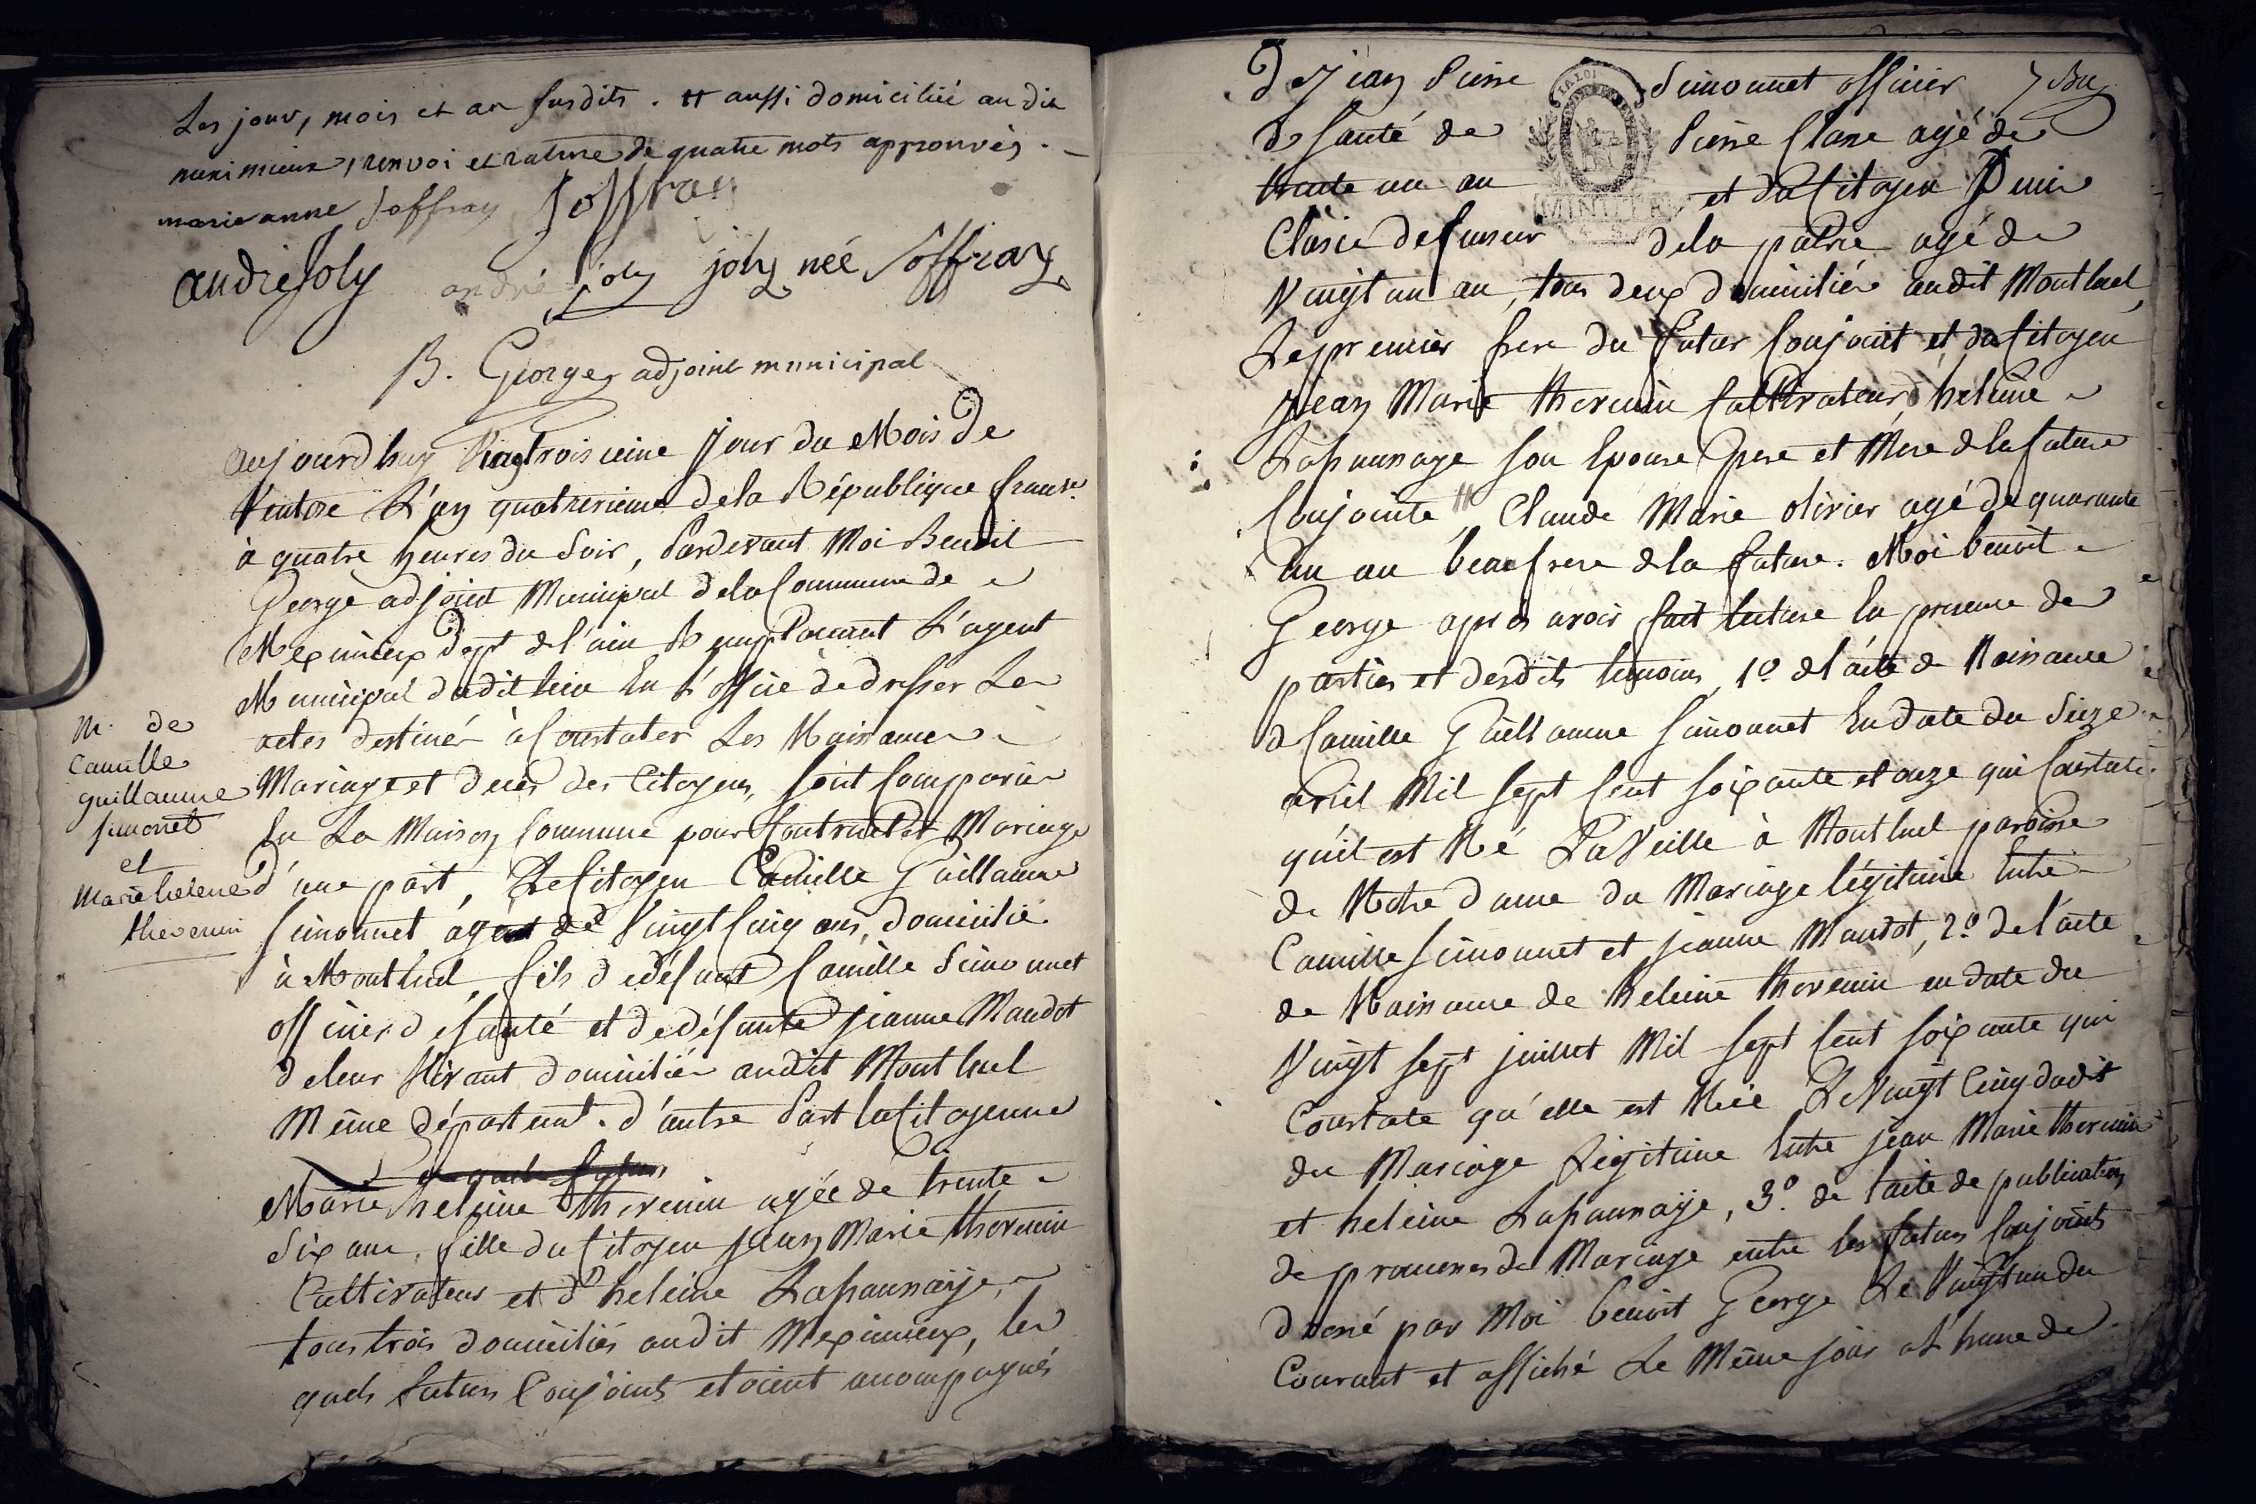 Les jour, mois et an susdits. # aussi domiciliée audit
meximieux, renvoi et rature de quatre mots approuvés.
marie anne Joffray Joffray
andré Joly andré Joly joly née Joffray
B. George adjoint municipal
aujourdhuy Vingtroisieme jour du Mois de
Ventose L'an quatrieme de la République franse.
à quatre heures du Soir, Pardevant Moi Benoit
George adjoint Municipal de la Commune de
Meximieux Dept de l'ain Remplacant L'agent
Municipal dudit lieu En L'office de dresser Les
actes destinés à Constater Les Naissances
Mariage et deces des Citoyens, sont Comparus
En La Maison Commune pour Contracter Mariage
d'une part, Le Citoyen Camille Guillaume
Simonnet agé de Vingt Cinq ans, domicilié
à Montluel fils de défunt Camille Simonnet
officier de santé et de défunte jeanne Mandot
de leur Vivant domiciliés audit Montluel
Même départemt. d'autre Part la Citoyenne
Marie heleine thevenin agée de trente
Six ans, fille du Citoyen jean Marie thevenin
Cultivateur et d'heleine Lapaunaije,
tous trois domiciliés audit Meximieux, les
quels futurs Conjoints etoient accompagnés
M. de
Camille
guillaume
simonet
et
Marie helene
thevenin
De jean Pierre Simonnet officier
de santé de Pierre Clare agé de
trente un an et du Citoyen Pierre
defenseur de la patrie agé de
Vingt un an, tous deux domiciliés audit Montluel,
Le premier frere du futur Conjoint et du Citoyen
jean Marie thevenin Cultivateur d'heleine
Lapaunaye son Epouse pere et Mere de la future
Conjointe # Claude Marie olivier agé de quarante
un an beaufrere de la future. Moi benoit
George apres avoir fait lecture En presence des
parties et desdits temoins, 1º de l'acte de Naissance
de Camille Guillaume Simonnet En date du Seize
avril Mil Sept Cent Soixante et onze qui Constate
qu'il est Né La Veille à Montluel paroisse
de Notre dame du Mariage légitime Entre
Camille Simonnet et jeanne Mandot, 2º de l'acte
de Naissance de heleine thevenin en date du
Vingt Sept juillet Mil Sept Cent Soixante qui
Constate qu'elle est Née Le Vingt Cinq dudit
du Mariage Légitime Entre jean Marie thevenin
et heleine Lapaunaije, 3º de l'acte de publication
de promesses de Mariage entre les futurs Conjoints
dressé par Moi benoit George Le Vingt un du
Courant et affiché Le Même jour et heure de
LA LOI
MINUTE